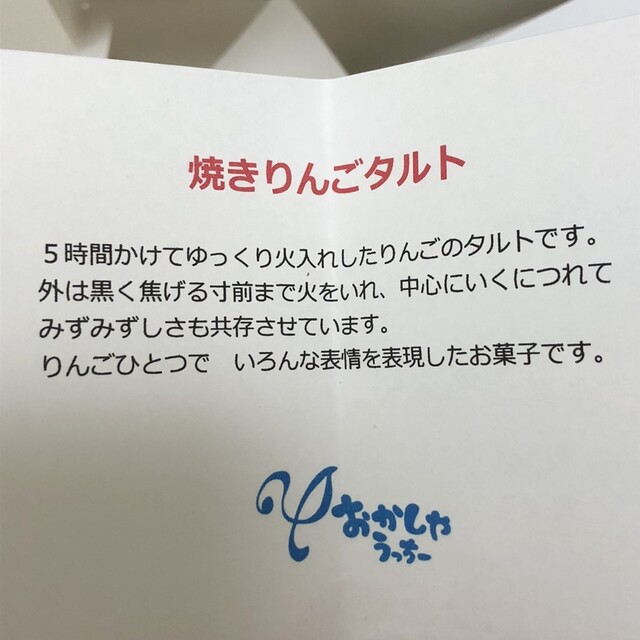 焼きりんごタルト
５時間かけてゆっくり火入れしたりんごのタルトです。
外は黒く焦げる寸前まで火をいれ、中心にいくにつれて
みずみずしさも共存させています。
りんごひとつで　いろんな表情を表現したお菓子です。
おかしや
うっちー